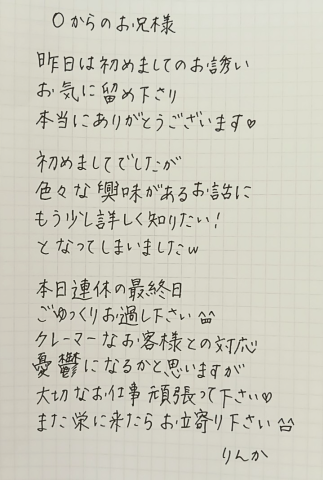 〇からのお兄様
昨日は初めましてのお誘い
お気に留め下さり
本当にありがとうございます♡
初めましてでしたが
色々な興味があるお話に
もう少し詳しく知りたい!
となってしまいましたw
本日連休の最終日
ごゆっくりお過し下さい^^
クレーマーなお客様との対応
憂鬱になるかと思いますが
大切なお仕事 頑張って下さい♡
また栄に来たら お立寄り下さい^^
りんか